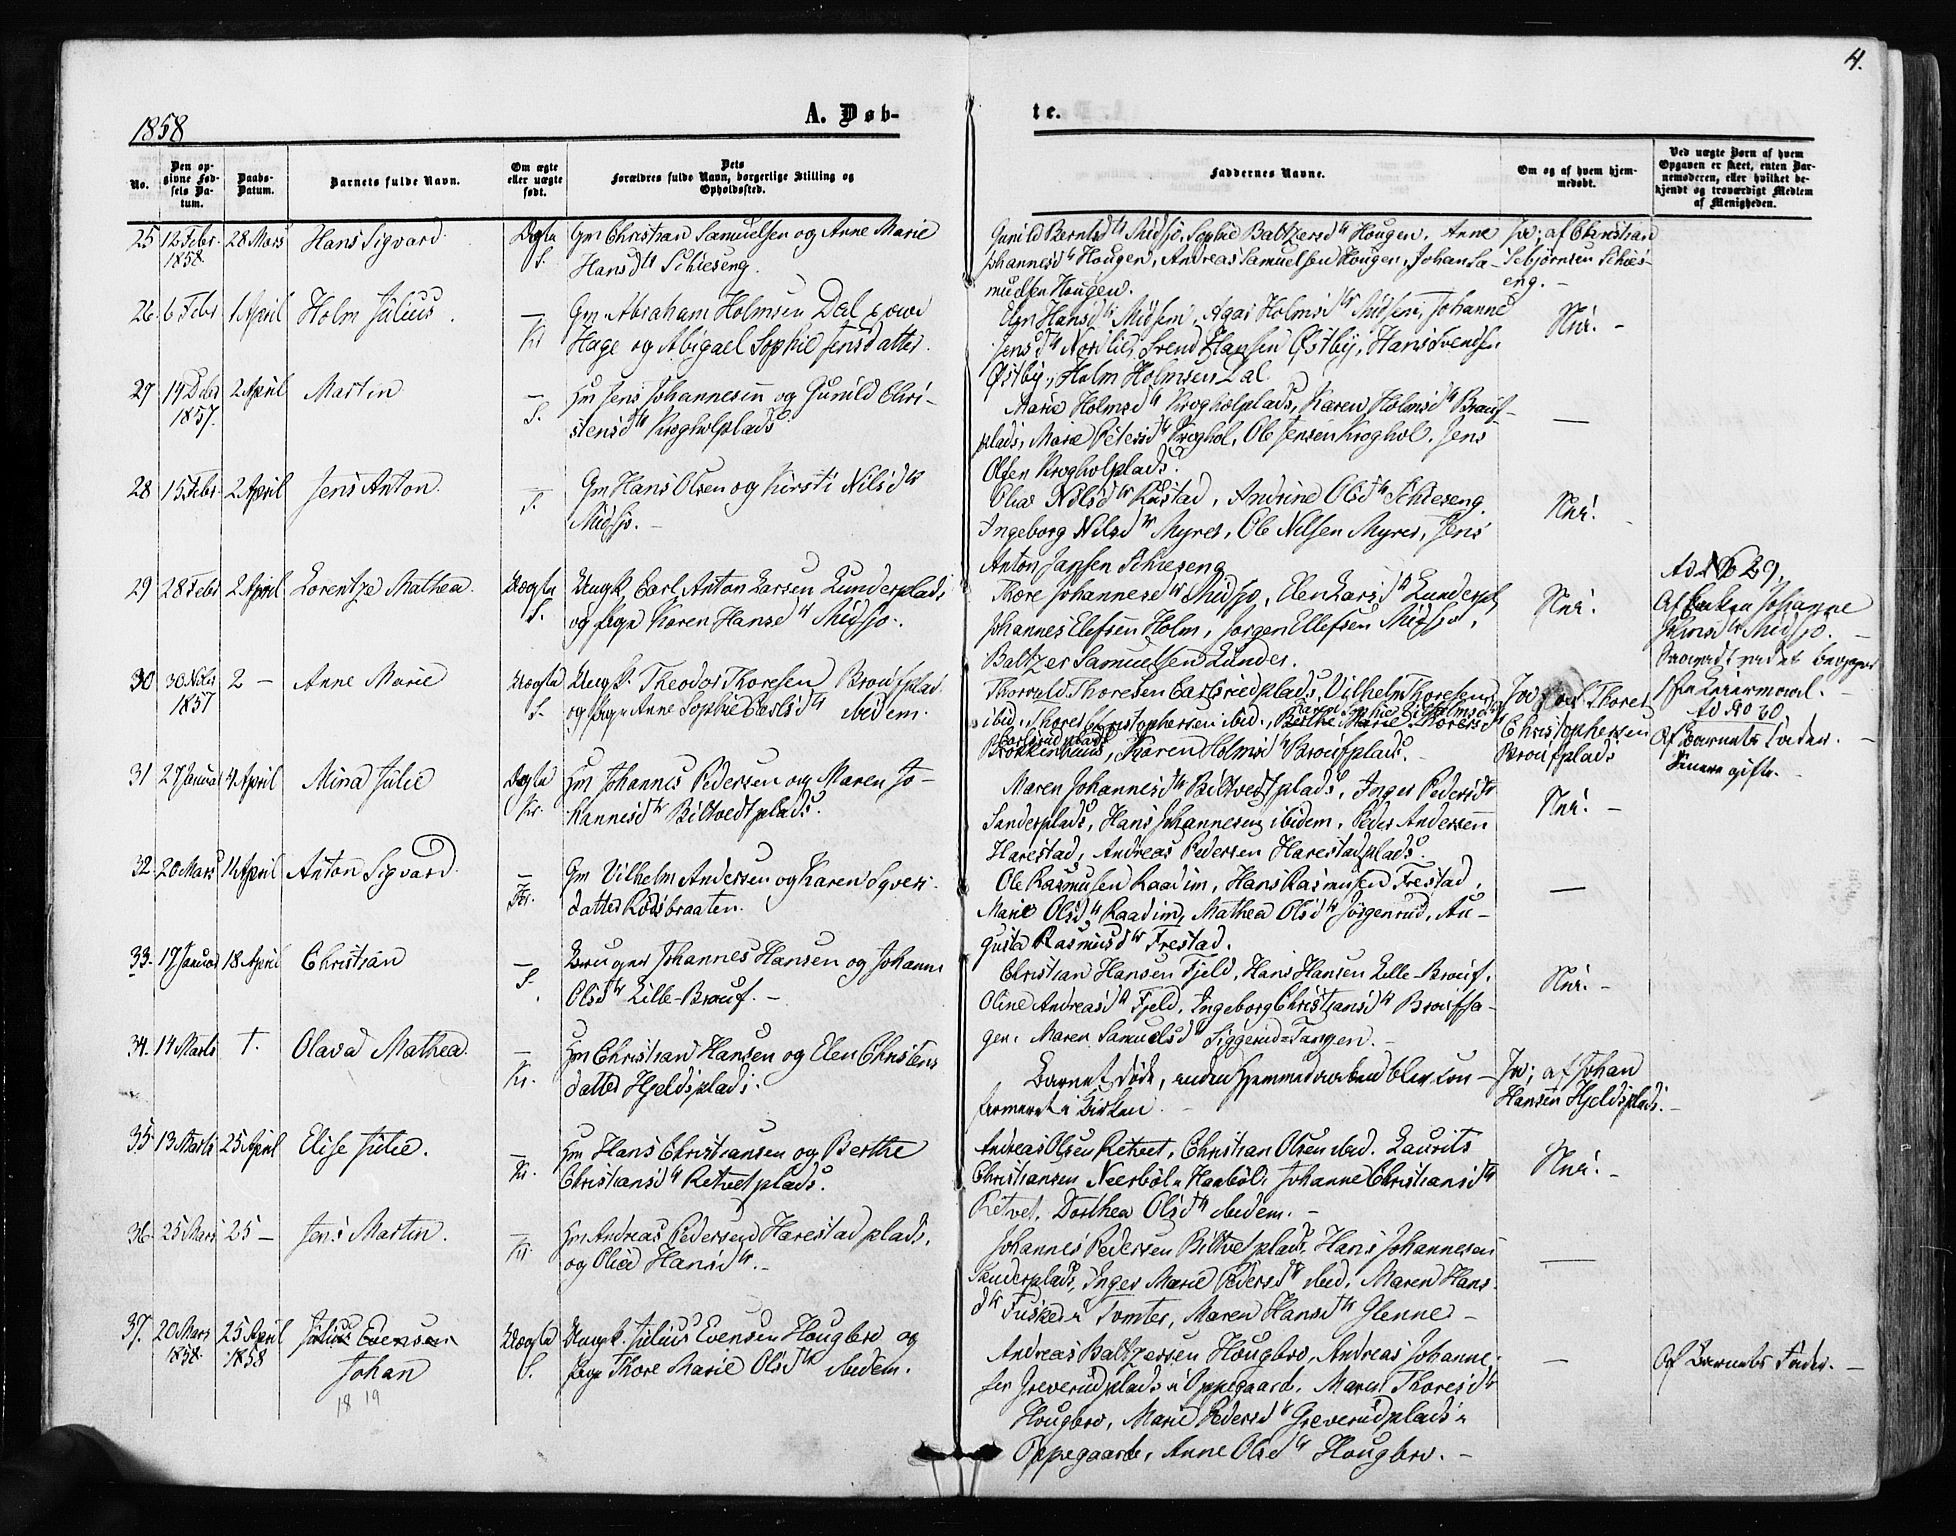 4.
1858
A. Døb-
te.
No.
Den op-
givne Fød-
sels Da-
tum.
Daabs-
Datum.
Barnets fulde Navn.
Om ægte
eller uægte
født.
Dets
Forældres fulde Navn, borgerlige Stilling og
Opholdssted.
Faddernes Navne.
Om og af hvem hjem-
medøbt.
Ved uægte Børn af hvem
Opgaven er skeet, enten Bar-
nemoderen, eller hvilket be-
kjendt og troværdigt Medlem
af Menigheden.
25 12 Febr. 28 Mars Hans Sigvard Ægte Gm Christian Samuelsen og Anne Marie
1858. S. Hansdtr Schieseng.
Gunild Berntsdtr Midsjø, Sophie Baltzersdtr Hougen, Anne Ja; af Christian
Johannesdtr Hougen, Andreas Samuelsen Hougen, Johan Sa- Schies-
muelsen Hougen. eng. -
26. 6 Febr 1 April Holm Julius. — Gm. Abraham Holmsen Dal
Kr. Hage og Abigael Sophie Jensdatter.
Hansdtr Midsem, Holmsdtr Midsem, Johanne Nei. -
Jensdtr Nordlie, Svend Hansen Østby, Hans Svendsen
Østby, Holm Holmsen Dal.
27 2 April Martin — Hm Jens Johannesen og Gunild Chri-
1857. S. stensdtr Krogholplads
Marie Holmsdtr Krogholplads, Karen Holmsdtr
plads, Marie Petersdtr Kroghol, Ole Jensen Kroghol, Jens —
Olsen Krogholplads.
28 15 Febr 2 April Jens Anton. — Gm Hans Olsen og Kirsti Nilsdtr
S. Midsjø. -
Nilsdtr Rustad, Andrine Olsdtr Schieseng Nei.
Ingeborg Nilsdtr Myrer, Ole Nilsen Myrer, Jens
Anton Jansen Schieseng
29 28 Febr 2 April Lorentze Mathea. Uægte Ungk. Carl Anton Larsen Lundersplads
S. og Pige Karen Hansdtr Midsjø.
Thore Johannesdtr Midsjø, Elen Larsdtr Nei.
Johannes Elefsen Holm, Jørgen Ellefsen Midsjø,
Baltzer Samuelsen Lunder.
Ad No 29
Johanne
Midsjø. -
Leiermaal. -
30 30 1857 2 — Anne Marie Uægte Ungk. Theodor Thoresen
S. og Pige Anne Sophie Carlsdtr ibidem.
Thorvald Thoresen Carlsrudplads, Vilhelm Thoresen Ja; af Thorer
ibid., Thorer Christophersen ibid., Berthe Marie Thoresdtr Christophersen
Karen Holmsdtr
Ad No 30
Af Barnets Fader. -
31 27 Januar 4 April Mina Julie Ægte Hm Johannes Pedersen og Maren Jo-
Kr. hannesdtr Biltvedtplads.
Maren Johannesdtr Biltvedtplads, Inger Pedersdtr Nei. -
Sanderplads, Hans Johannesen ibidem, Peder Andersen
Harestad, Andreas Pedersen Harestadplads.
32. 20 Mars 11 April Anton Sigvard. — Gm Vilhelm Andersen og Karen Syvers-
Kr. datter Rødsbraaten.
Ole Rasmusen Raadim, Hans Rasmusen Frestad,
Marie Olsdtr Raadim, Mathea Olsdtr Jørgenrud, Au- —
gusta Rasmusdtr Frestad.
33. 17 Januar 18 April Christian — Bruger Johannes Hansen og Johanne
S. Olsdtr Lille-
Christian Hansen Fjeld, Hans Hansen Lille- Nei. -
Oline Andreasdtr Fjeld, Ingeborg Christiansdtr
gen, Maren Samuelsdtr Siggerud-Tangen. -
34. 14 Marts †. Olava Mathea. — Hm Christian Hansen og Elen Christens
Kr. datter Hjeldsplads.
Barnet døde, inden Hjemmedaaben blev con- Ja; af Johan
firmeret i Kirken. - Hansen Hjeldsplads. -
35. 13 Marts 25 April Elise Julie. — Hm Hans Christiansen og Berthe
Kr. Christiansdtr Retvetplads.
Andreas Olsen Retvet, Christian Olsen ibid. Laurits Nei. -
Christiansen Johanne Christiansdtr
Retvet, Dorthea Olsdtr ibidem. -
36. 25 Mars 25 — Jens Martin. — Hm Andreas Pedersen Harestadplads,
Kr. og Hansdtr. -
Johannes Pedersen Biltvetplads, Hans Johannesen
Sanderplads, Inger Marie Pedersdtr ibid., Maren Hans- —
dtr Tomter, Maren Hansdtr Glenne -
37. 20 Mars 25 April Julius Evensen Uægte Ungk. Julius Evensen Hougbro og
1858. 1858 Johan S. Pige Thore Marie Olsdtr ibidem.
18 19
Andreas Baltzersen Hougbro, Andreas Johanne- — Af Barnets Fader. -
sen Greverudplads i Oppegaard, Maren Thoresdtr
Hougbro, Marie Pedersdtr Greverudplads i
Oppegaard, Anne Olsdtr Hougbro. -